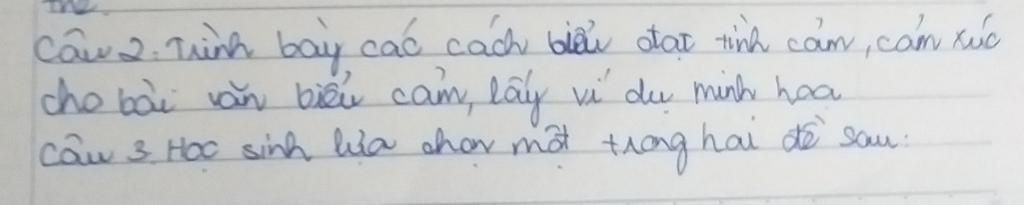 Câu 2: Trình bày các cách biểu đạt tình cảm, cảm xúc
cho bài văn biểu cảm, lấy ví dụ minh hoạ
Câu 3. Học sinh lựa chọn một trong hai đề sau: